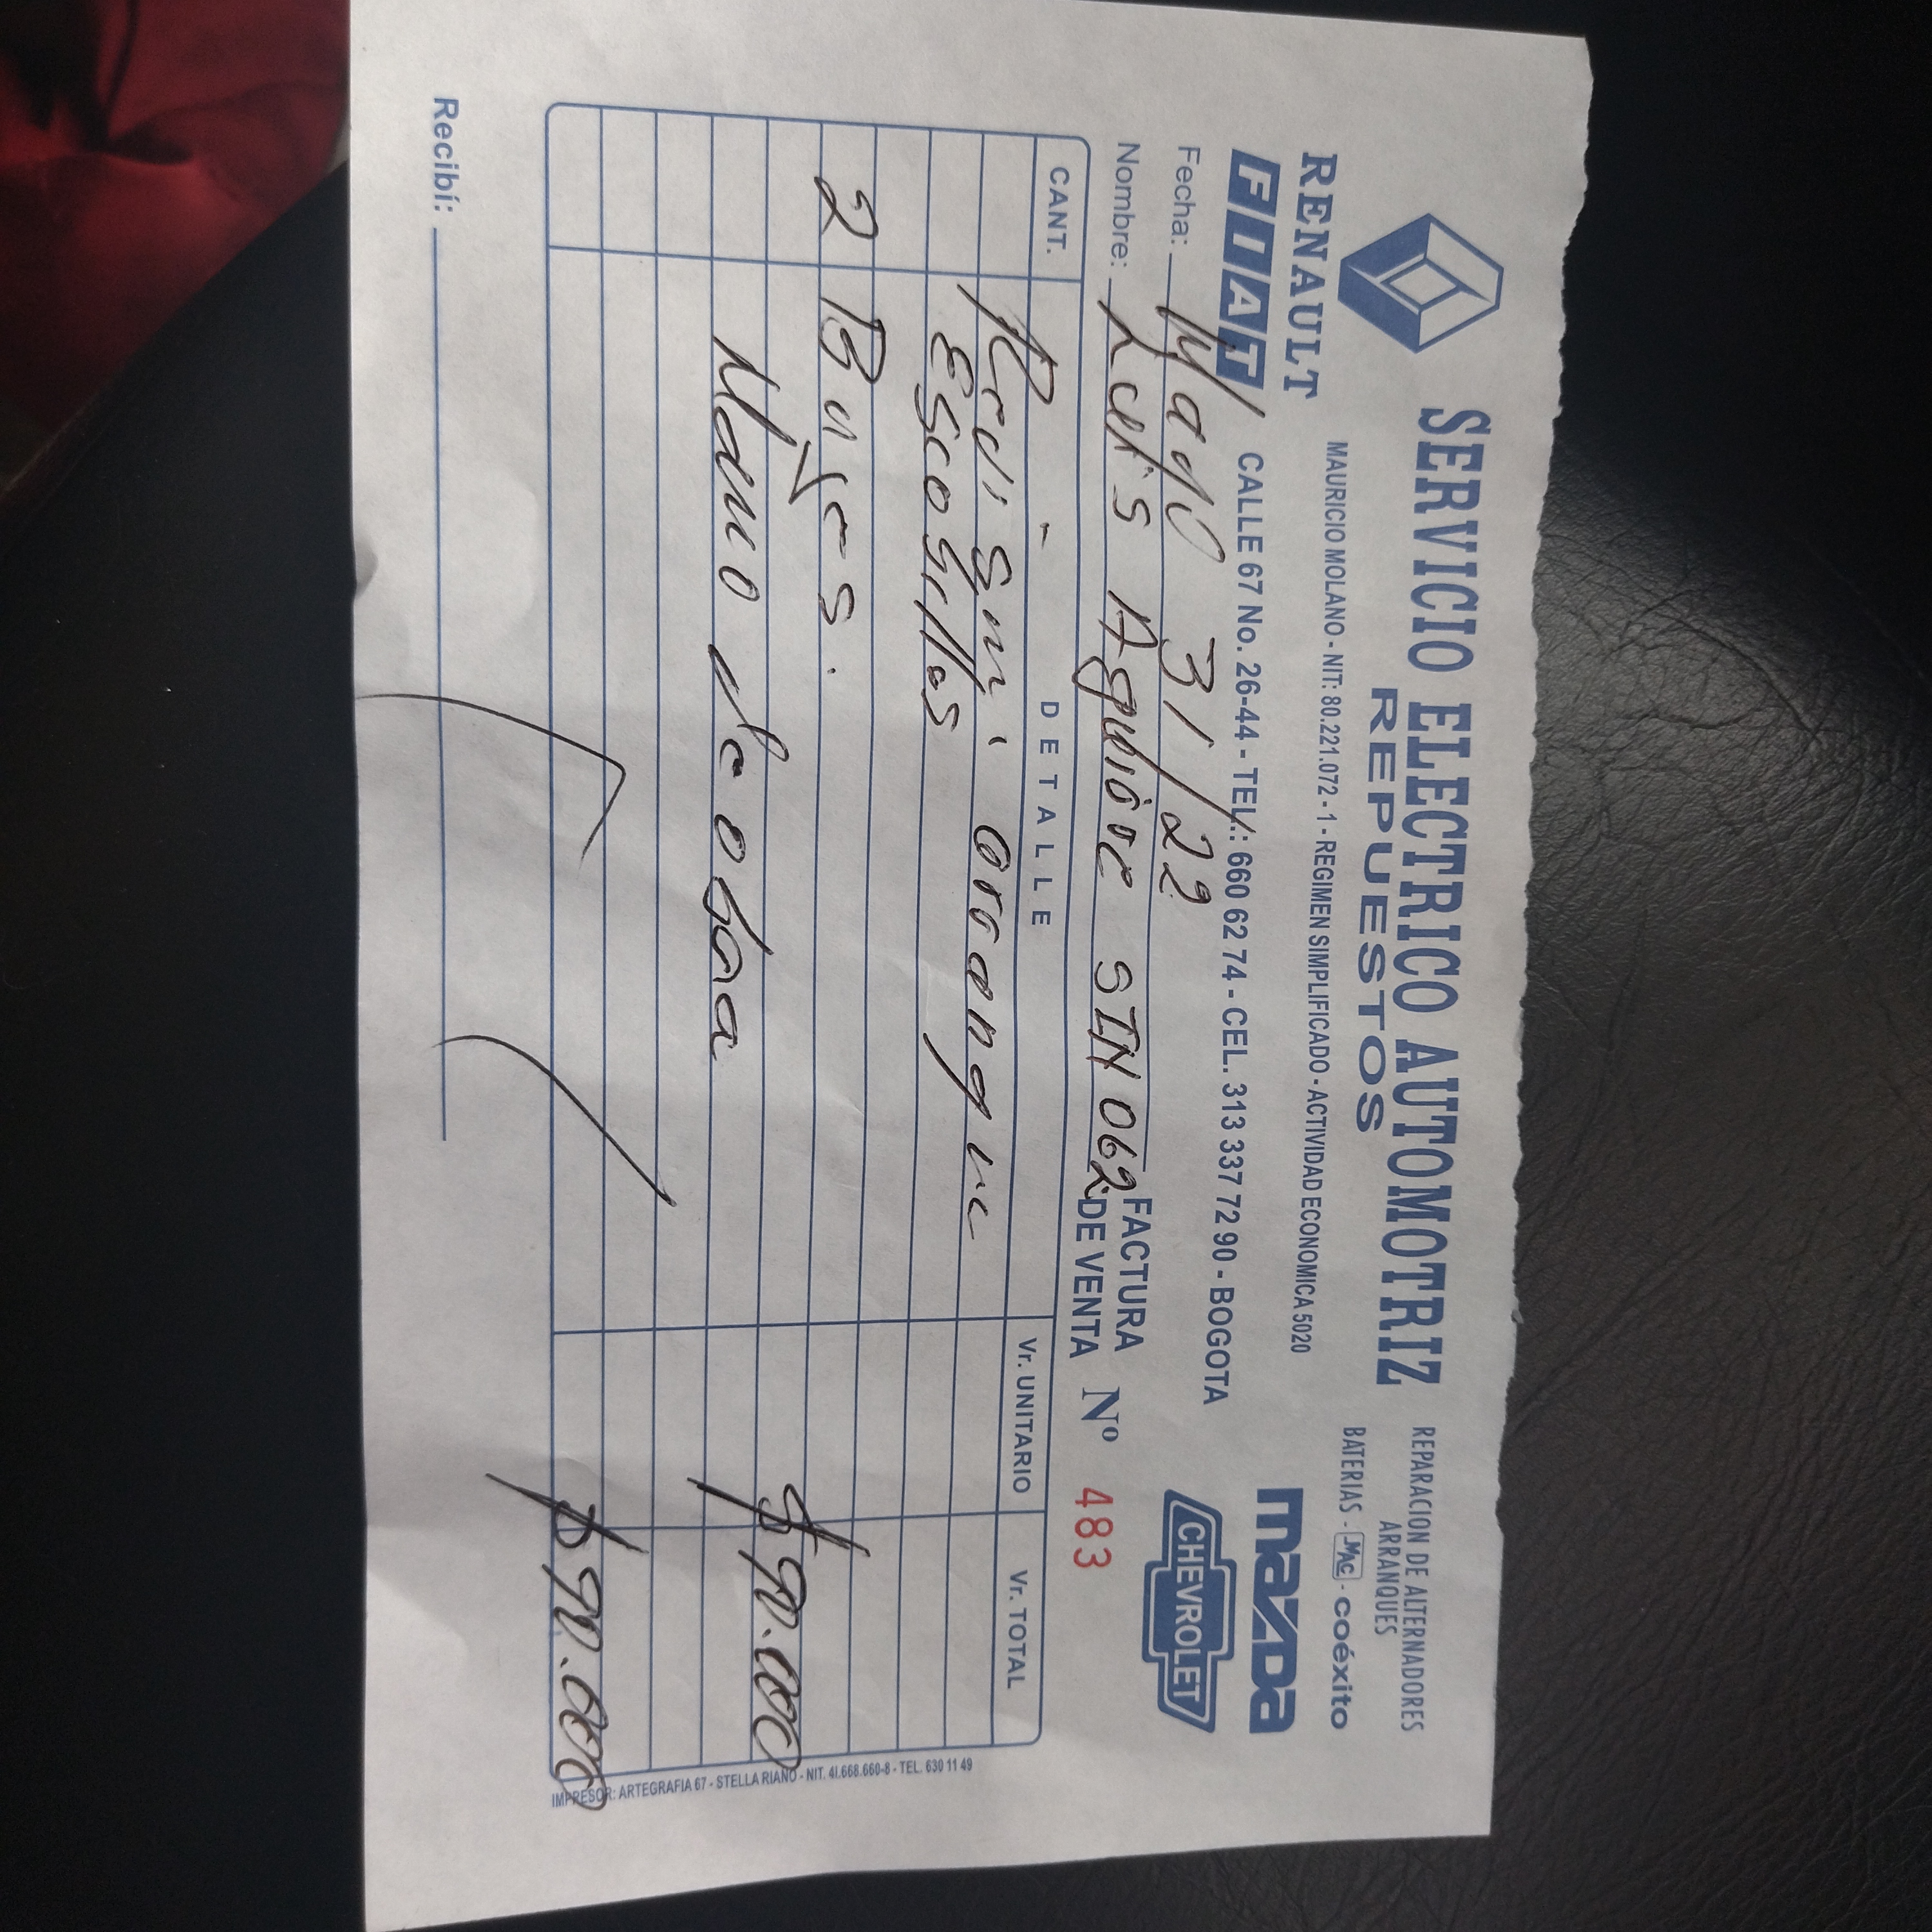 SERVICIO ELECTRICO AUTOMOTRIZ
REPUESTOS
REPARACION DE ALTERNADORES
ARRANQUES
BATERIAS - MAC - coéxito
RENAULT
MAURICIO MOLANO - NIT: 80.221.072 - 1 - REGIMEN SIMPLIFICADO - ACTIVIDAD ECONOMICA 5020
FIAT
CALLE 67 No. 26-44 - TEL.: 660 62 74 - CEL. 313 337 72 90 - BOGOTA
mazda
CHEVROLET
Fecha: Mayo 31/22
Nombre: Luis Aguirre SIN 062
FACTURA
DE VENTA Nº 483
CANT. DETALLE Vr. UNITARIO Vr. TOTAL
arranque
Escobillas
2 Bujes.
Mano de obra $90.000
$90.000
Recibí:
IMPRESOR: ARTEGRAFIA 67 - STELLA RIAÑO - NIT. 41.668.660-8 - TEL. 630 11 49